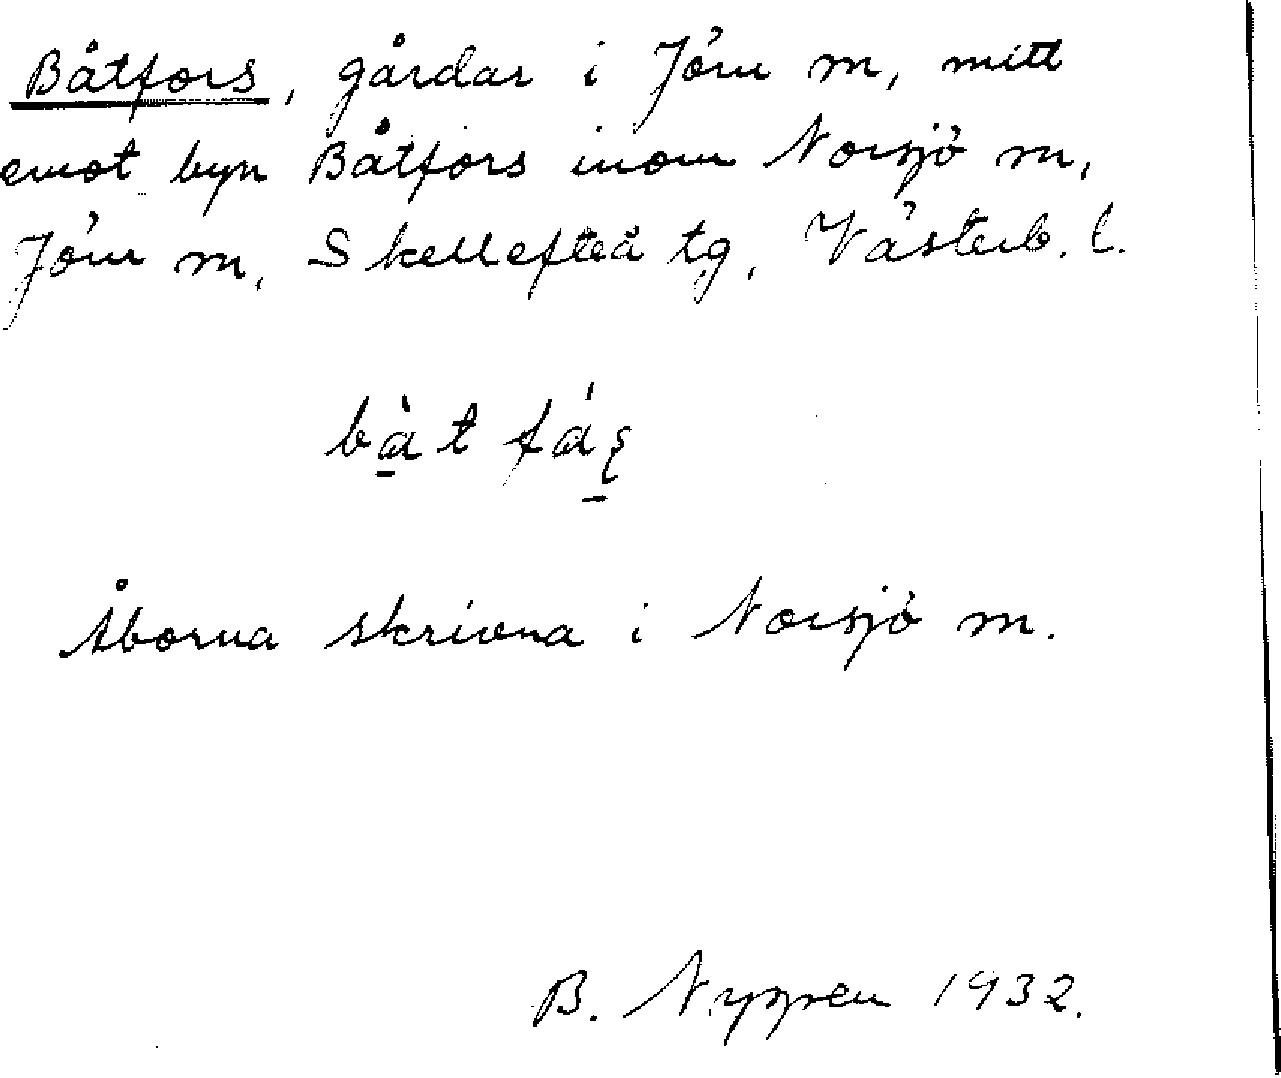 Båtfors, gårdar i Jörn m, mitt
emot byn Båtfors inom Norsjö m,
Jörn m, Skellefteå tg, Västerb. l.
Åborna skrivna i Norsjö m.
B. 1932.